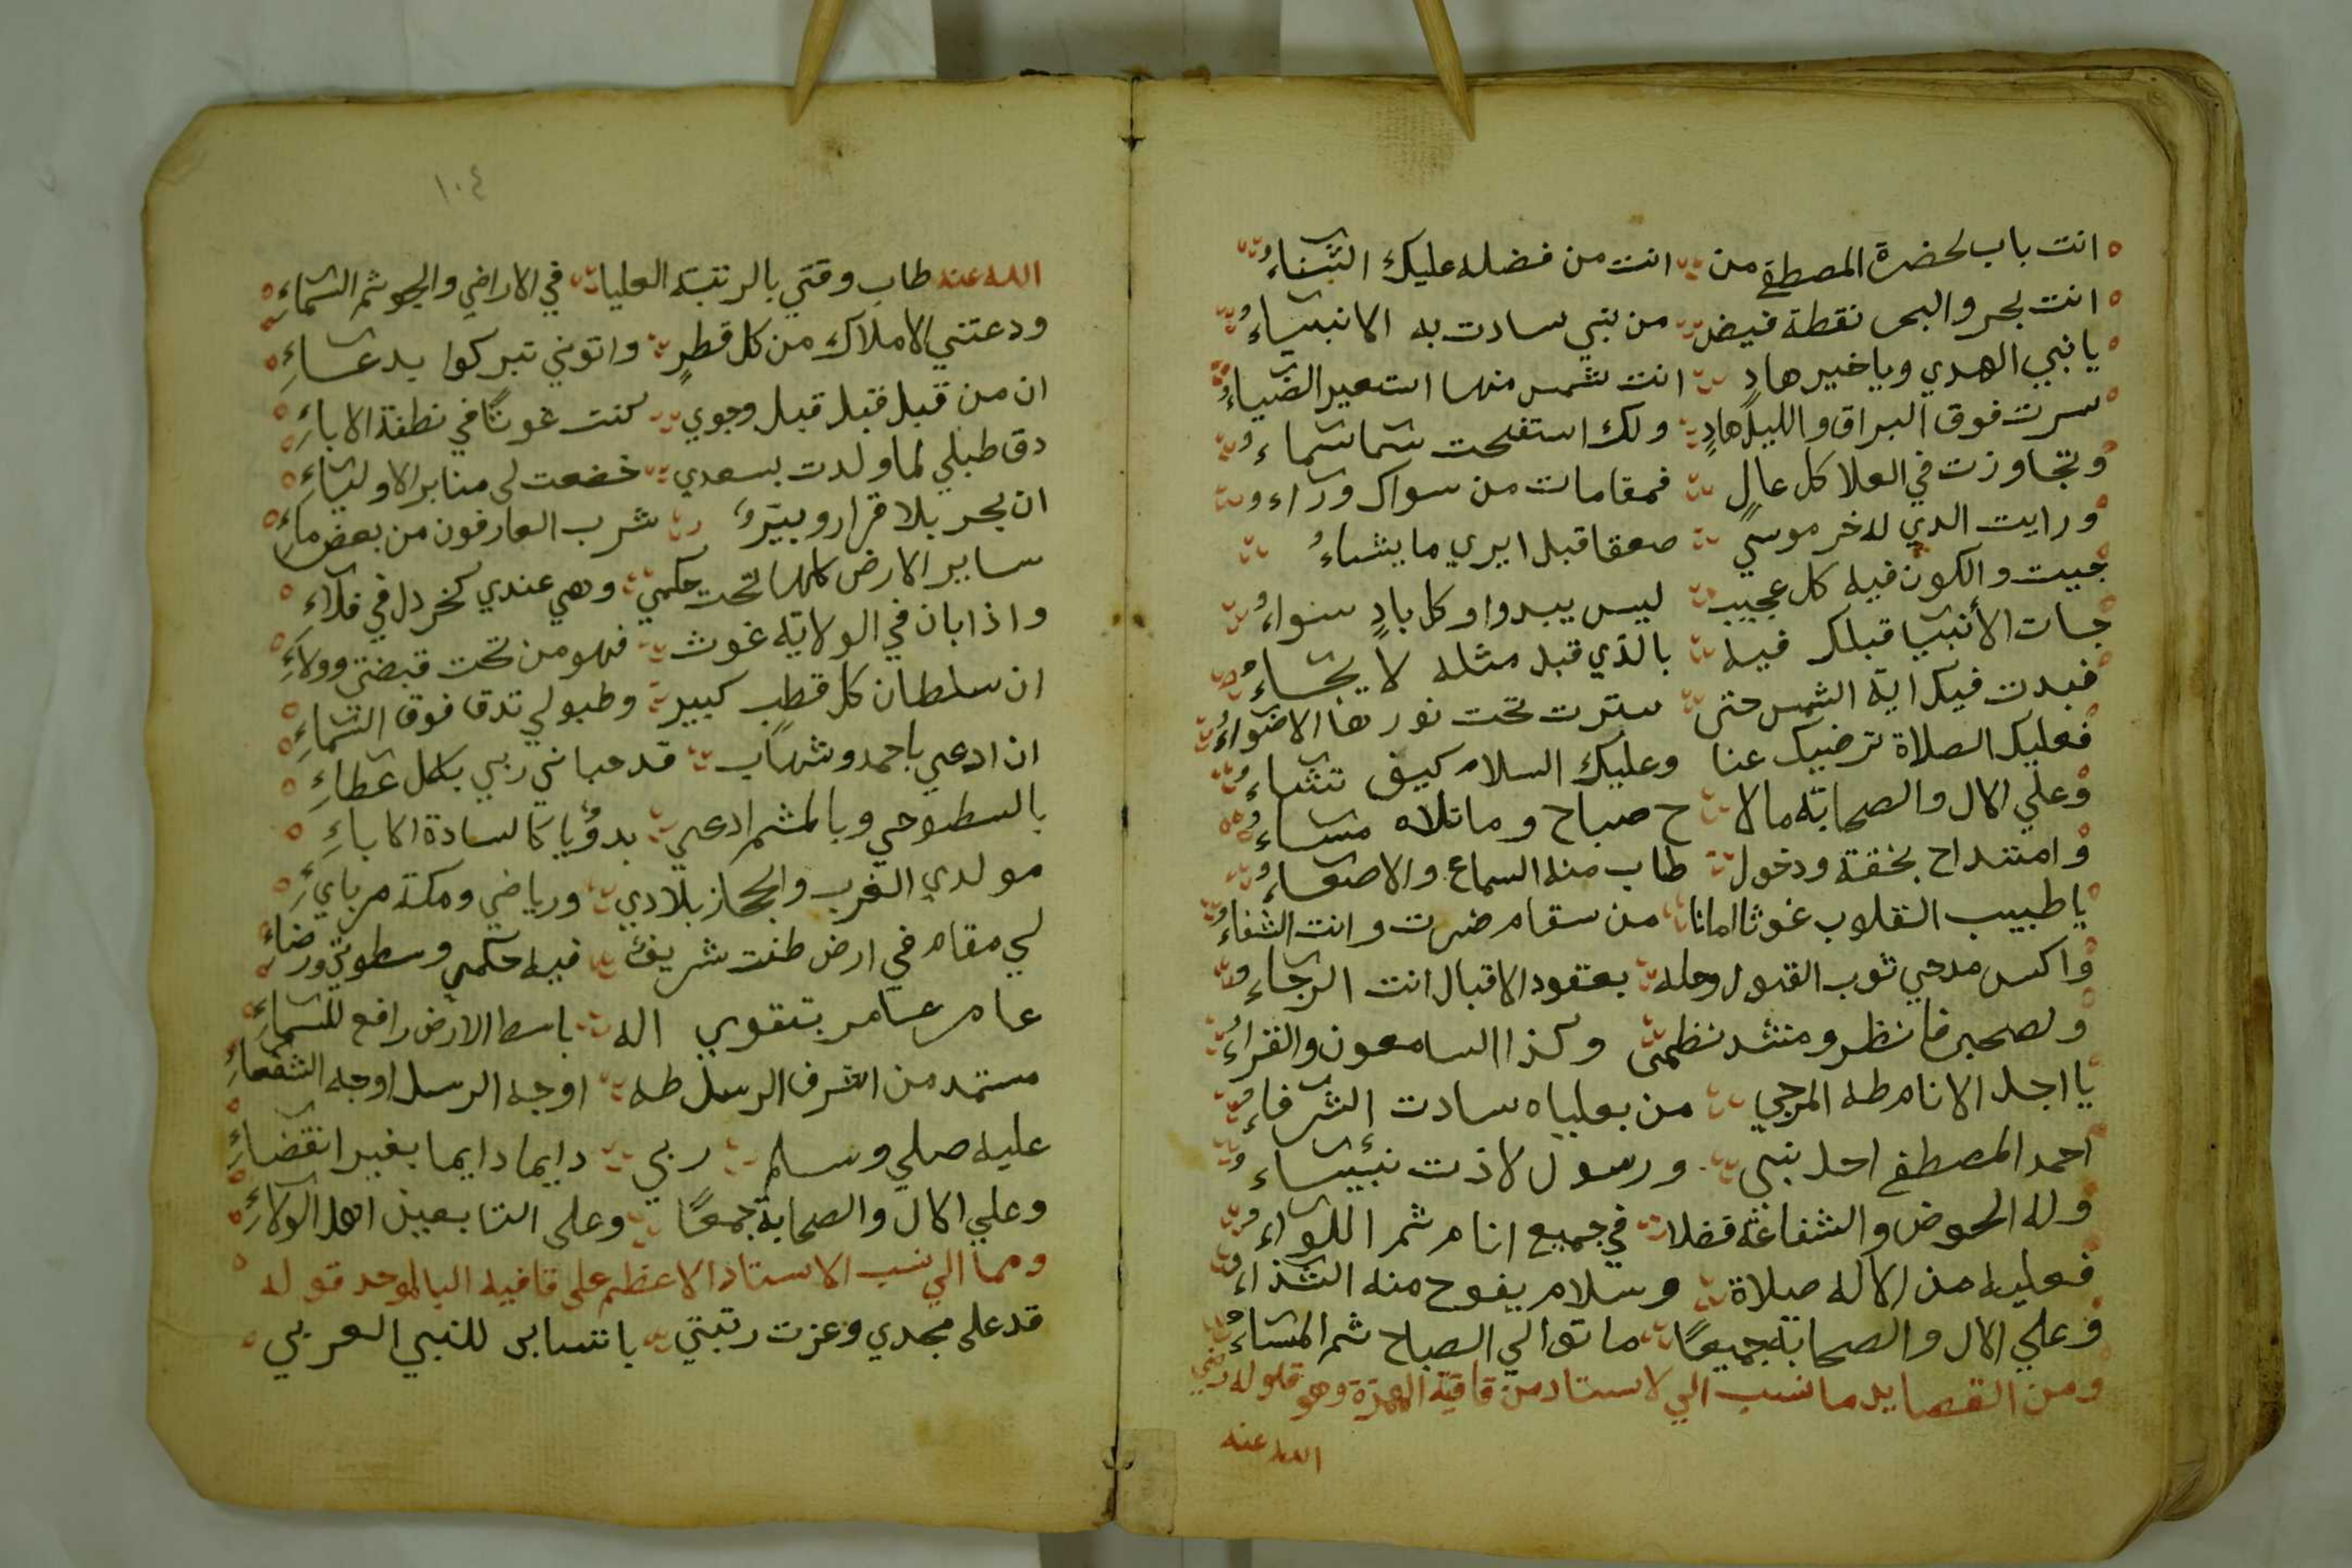 انت باب لحضرة المصطفي من انت من فضله عليك الثناءُ
انت بحر والبحر نقطة فيض من نبي سادت به الانبياءُ
يا نبي الهدي ويا خير هادٍ انت شمس منها استعير الضياءُ
سرت فوق البراق والليل هادٍ ولك استفتحت سما سماءُ
وتجاوزت في العلا كل عالٍ فمقامات من سواك وراءُ
ورايت الدي له خر موسي صعقا قبل ايري ما يشاءُ
جيت والكون فيه كل عجيب ليس يبدوا وكل بادٍ سواءُ
جات الأنبيا قبلك فيه بالذي قبل مثله لا يجاءُ
فبدت فيك اية الشمس حتي سترت تحت نورها الاضواءُ
فعليك الصلاة ترضيك عنا وعليك السلام كيف تشاءُ
وعلي الال والصحابة مالا ح صباح وما تلاه مساءُ
وامتداح بخقة ودخول طاب منه السماع والاصغاءُ
يا طبيب القلوب غوثا امانا من سقام ضرت وانت الشفاءُ
واكس مدحي ثوب القبول وحله بعقود الاقبال انت الرجاءُ
ولصحبي فانظر ومنشد نظمي وكذا السامعون والقراءُ
يا اجل الانام طه المرجي من بعلياه سادت الشرفاءُ
احمد المصطفي اجل نبي ورسول لاذت نبيياءُ
وله الحوض والشفاعة فضلا في جميع انام ثم اللواءُ
فعليه من الاله صلاة وسلام يفوح منه الشذاءُ
وعلي الال والصحابة جميعًا ما توالي الصباح ثم المساءُ
ومن القصايد ما نسب الي لاستاد من قافية الهمزة وهو قلوله رضي
الله عنه
١٠٤
الله عنه طاب وقتي بالرتبة العليا في الاراضي والجو ثم السماءِ
ودعتني الاملاك من كل قطرٍ واتوني تبركوا بدعاءِ
ان من قبل قبل قبل وجوي كنت غوثًا في نطفة الاباءِ
دق طبلي لما ولدت بسعدي خضعت لي منابر الاولياءِ
ان بحر بلا قرار وبيرٍ شرب العارفون من بعض ماءِ
ساير الارض كلها تحت حكمي وهي عندي كخردل في فلاء
واذا بان في الولاية غوث فهو من تحت قبضتي وولاءِ
ان سلطان كل قطب كبير وطبولي تدق فوق السماءِ
ان ادعي باحمد وشهاب قد حباني ربي بكل عطاءِ
بالسطوحي وبالملثم ادعي بدؤيا كالسادة الاباءِ
مولدي الغرب والحجاز بلادي ورياضي ومكة مرباىءِ
لي مقام في ارض طنت شريف فيه حكمي وسطوتي ورضاءِ
عامر عامر بتقوي اله باسط الارض رافع للسماءِ
مستمد من اشرف الرسل طه اوجه الرسل اوجه الشفعاءِ
عليه صلي وسلم ربي دايما دايما بغير انقضاءِ
وعلي الال والصحابة جمعًا وعلي التابعين اهل الولاءِ
ومما الي نسب الاستاذ الاعظم علي قافيه اليا الموحد قوله
قد علي مجدي وعزت رتبتي بانتسابي للنبي العربي